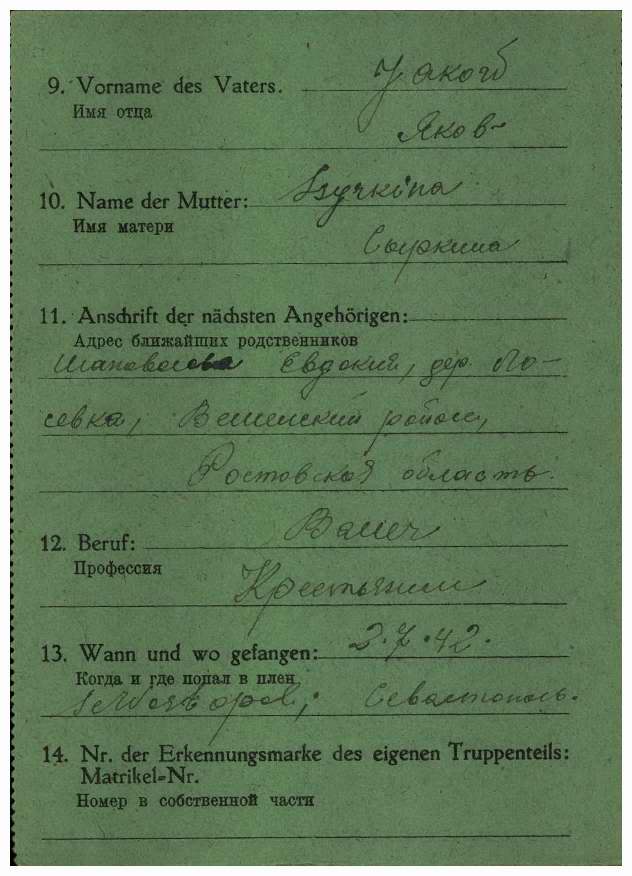 9. Vorname des Vaters. Jакоб
Имя отца
Яков
10. Name der Mutter: Ssyrkina
Имя матери
Сыркина
11. Anschrift der nächsten Angehörigen:
Адрес ближайших родственников
Шаповалова Евдокия, дер. Ло-
севка, Вешенский район,
Ростовская область.
12. Beruf: Bauer
Профессия
Крестьянин
13. Wann und wo gefangen: 2.7.42.
Когда и где попал в плен
Sewastopol; Севастополь.
14. Nr. der Erkennungsmarke des eigenen Truppenteils:
Matrikel-Nr.
Номер в собственной части